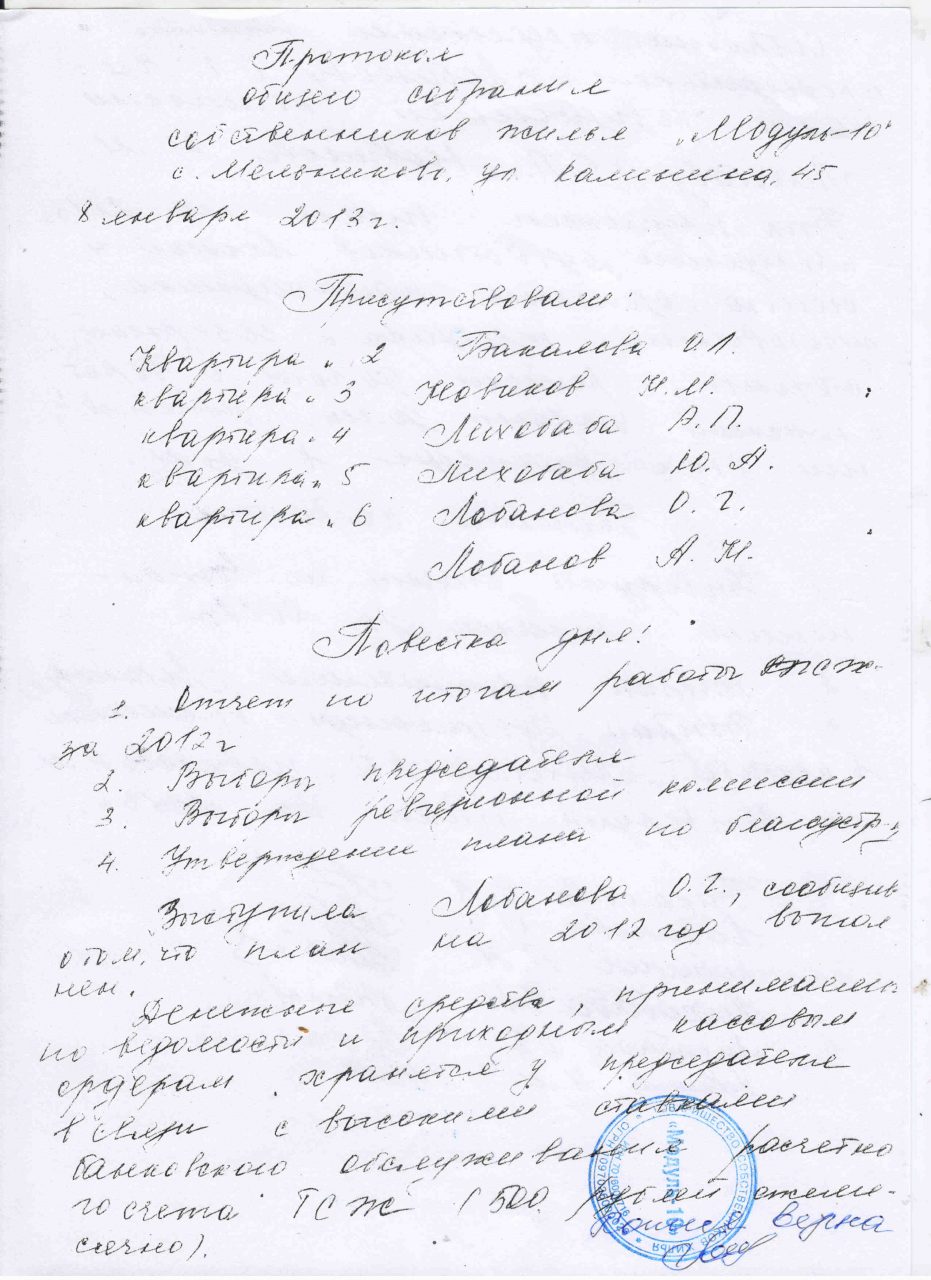 Протокол
общего собрания
собственников жилья „Модуль-10"
с. Мельниково, ул Калинина, 45
8 января 2013 г.
Присутствовали:
Квартира „ 2 Бакалова О.Л.
квартира „ 3 Новиков Н.М.
квартира „ 4 Лихобаба А.П.
квартира „ 5 Лихобаба Ю.А.
квартира „ 6 Лобанова О.Г.
Лобанов А.Н.
Повестка дня:
1. Отчет по итогам работы ТСЖ
за 2012 г
2. Выборы председателя
3. Выборы ревизионной комиссии
4. Утверждение плана по благоустр-у
Выступила Лобанова О.Г., сообщив
о том, что план на 2012 год выпол
нен.
Денежные средства, принимаемы
по ведомости и приходным кассовым
ордерам хранятся у председателя
в связи с высокими ставками
банковского обслуживания расчетно
го счета ТСЖ (500 рублей ежеме-
сячно).
Копия верна
ТОВАРИЩЕСТВО СОБСТВЕННИКОВ ЖИЛЬЯ
«Модуль 10»